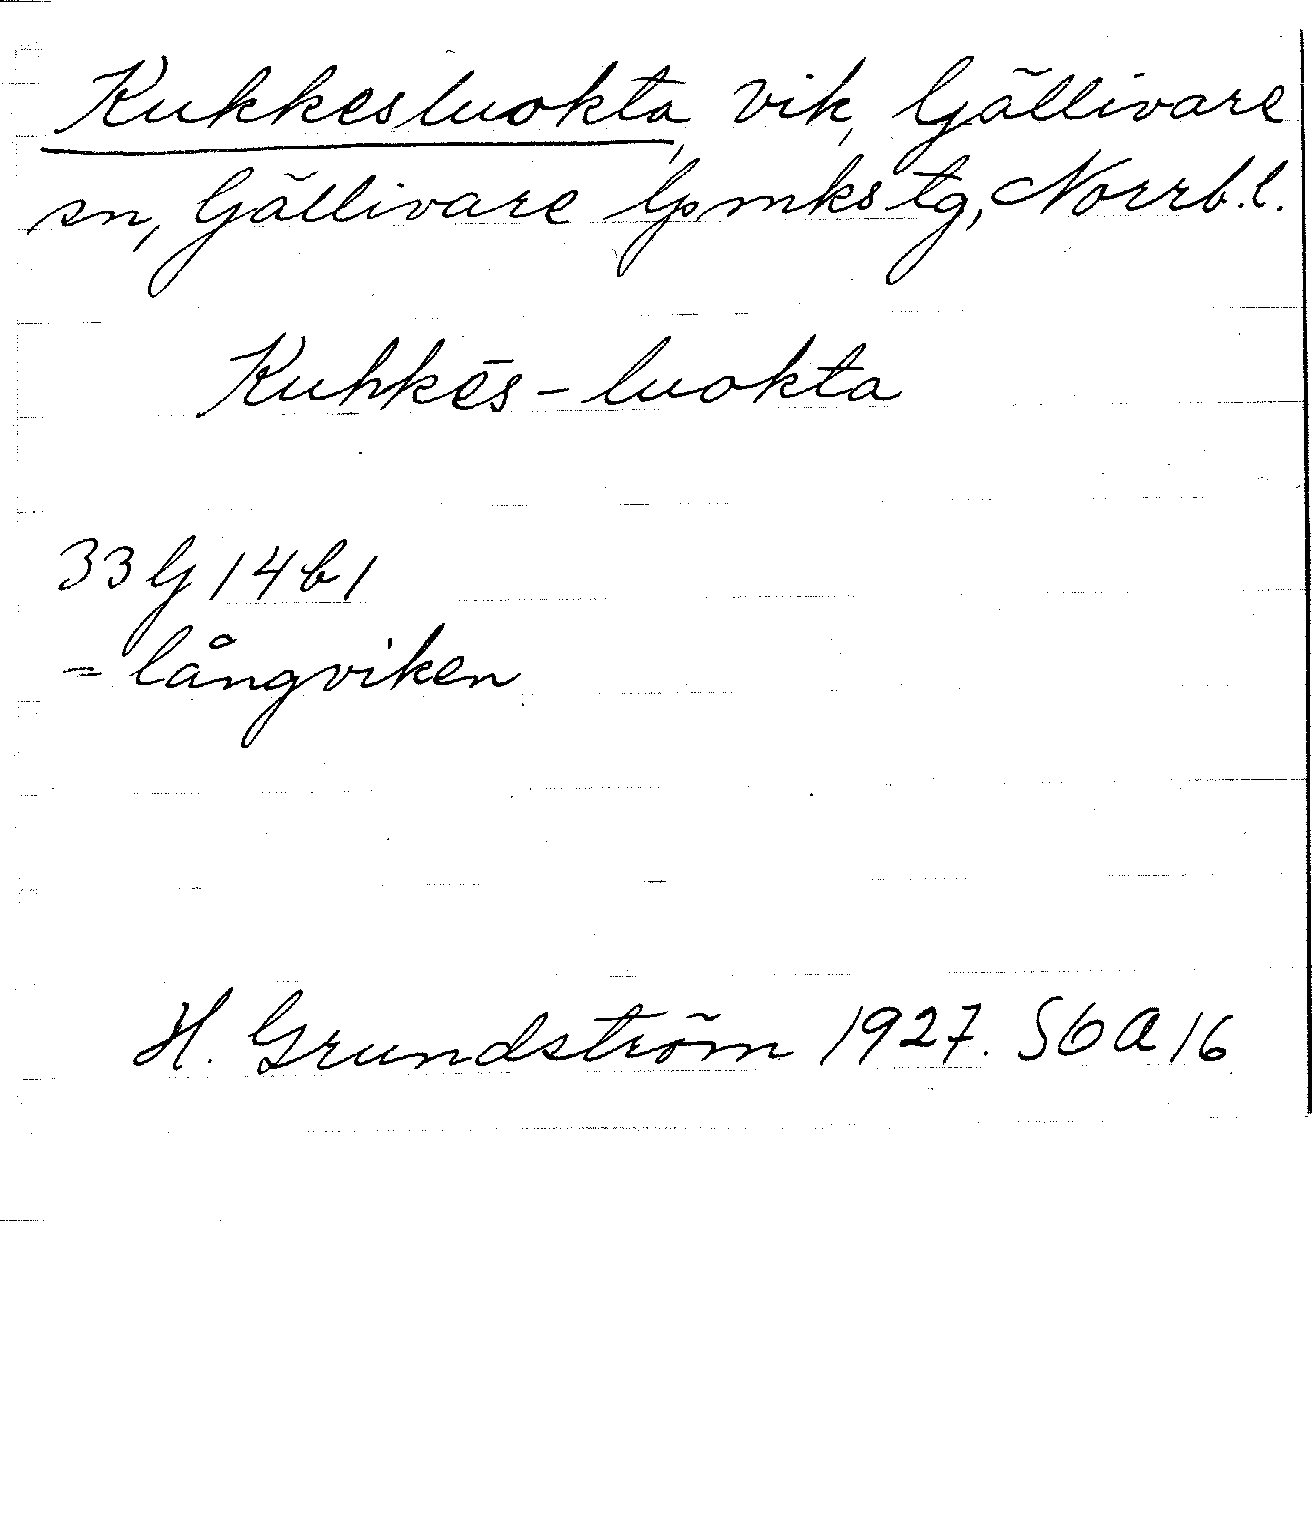 Kukkesluokta, vik, Gällivare
sn, Gällivare lpmks tg, Norrb.l.
Kuhkēs-luokta
33 G 14 b 1
= långviken
H. Grundström 1927. S 6 a 16